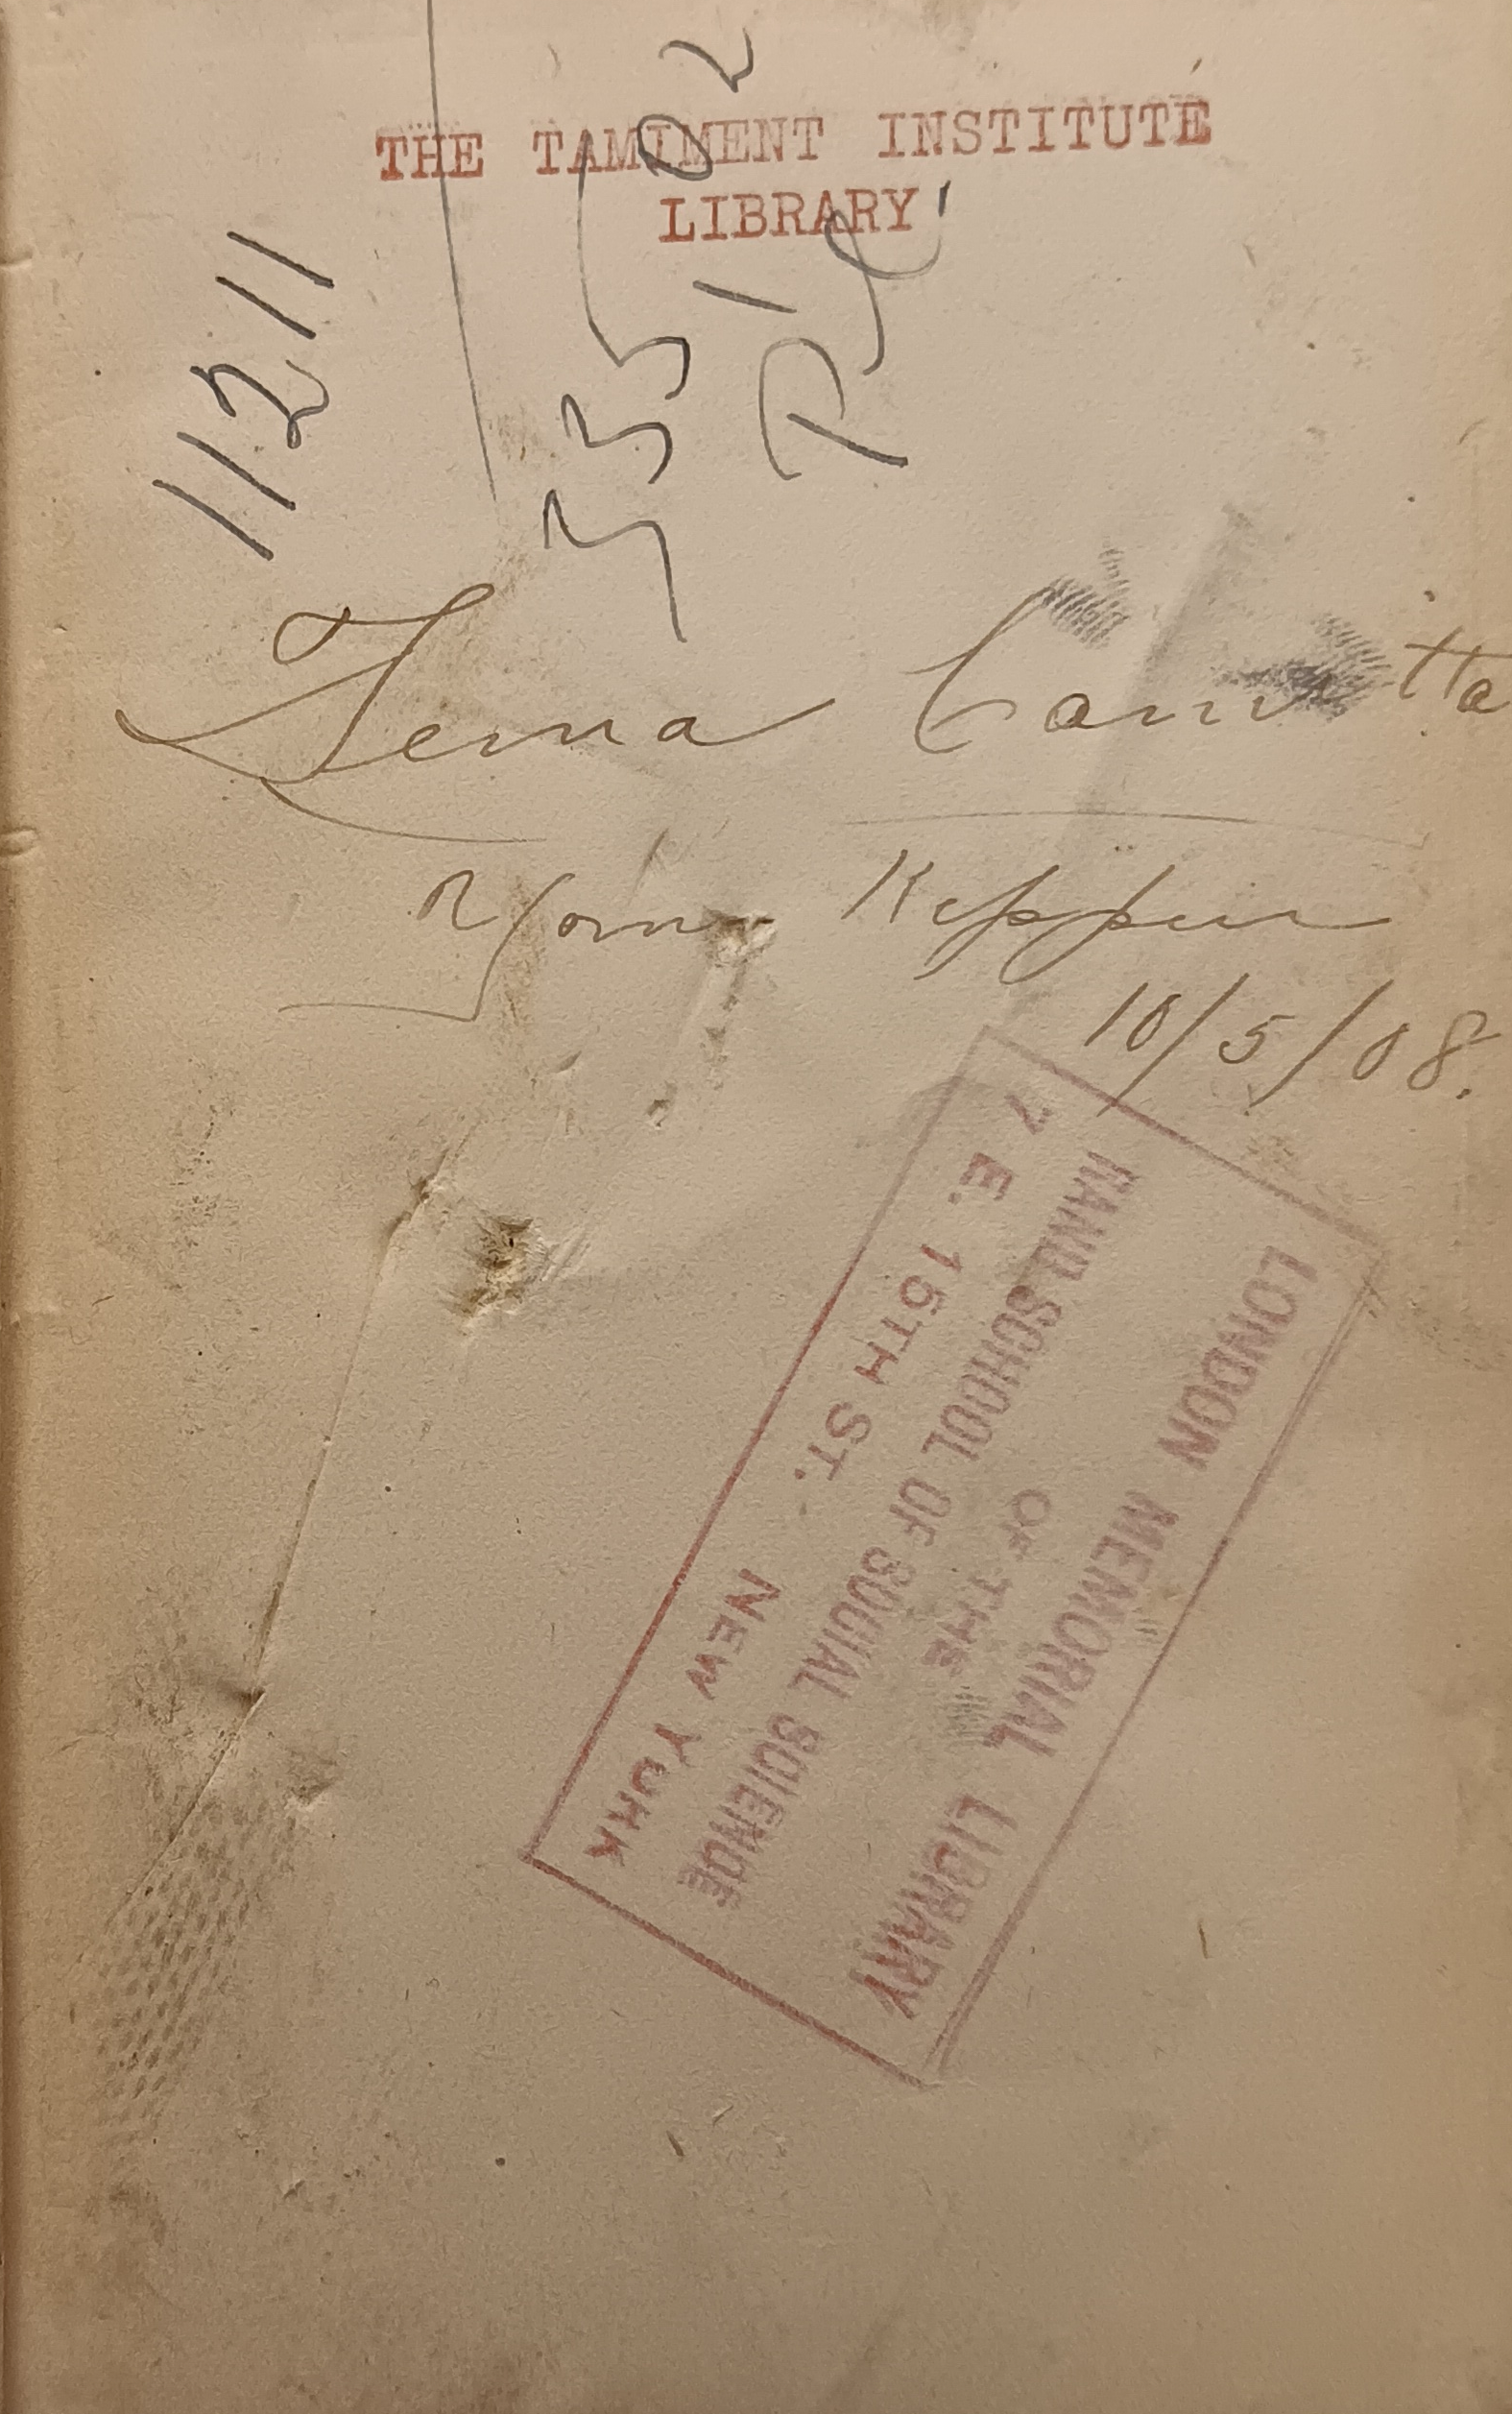 THE TAMIMENT INSTITUTE
LIBRARY
11211
Tema Camitta
Yom Kippur
10/5/08.
LONDON MEMORIAL LIBRARY
OF THE
RAND SCHOOL OF SOCIAL SCIENCE
7 E. 15TH ST. NEW YORK